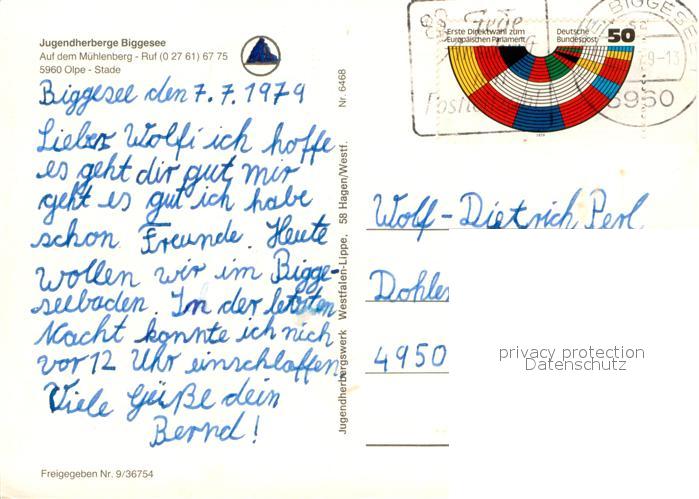 Jugendherberge Biggesee
Auf dem Mühlenberg - Ruf (0 27 61) 67 75
5960 Olpe - Stade
Biggesee den 7.7.1979
Lieber Wolfi ich hoffe
es geht dir gut, mir
geht es gut ich habe
schon Freunde. Heute
wollen wir im Bigge-
seebaden. In der letzten
Nacht konnte ich nich
vor 12 Uhr einschlaffen
Viele Grüße dein
Bernd!
Freigegeben Nr. 9/36754
Jugendherbergswerk Westfalen-Lippe, 58 Hagen/Westf. Nr. 6468
Erste Direktwahl zum
Europäischen Parlament
Deutsche
Bundespost
50
1979
BIGGESEE
9-13
5950
Wolf-Dietrich Perl
Dohle
4950
privacy protection
Datenschutz